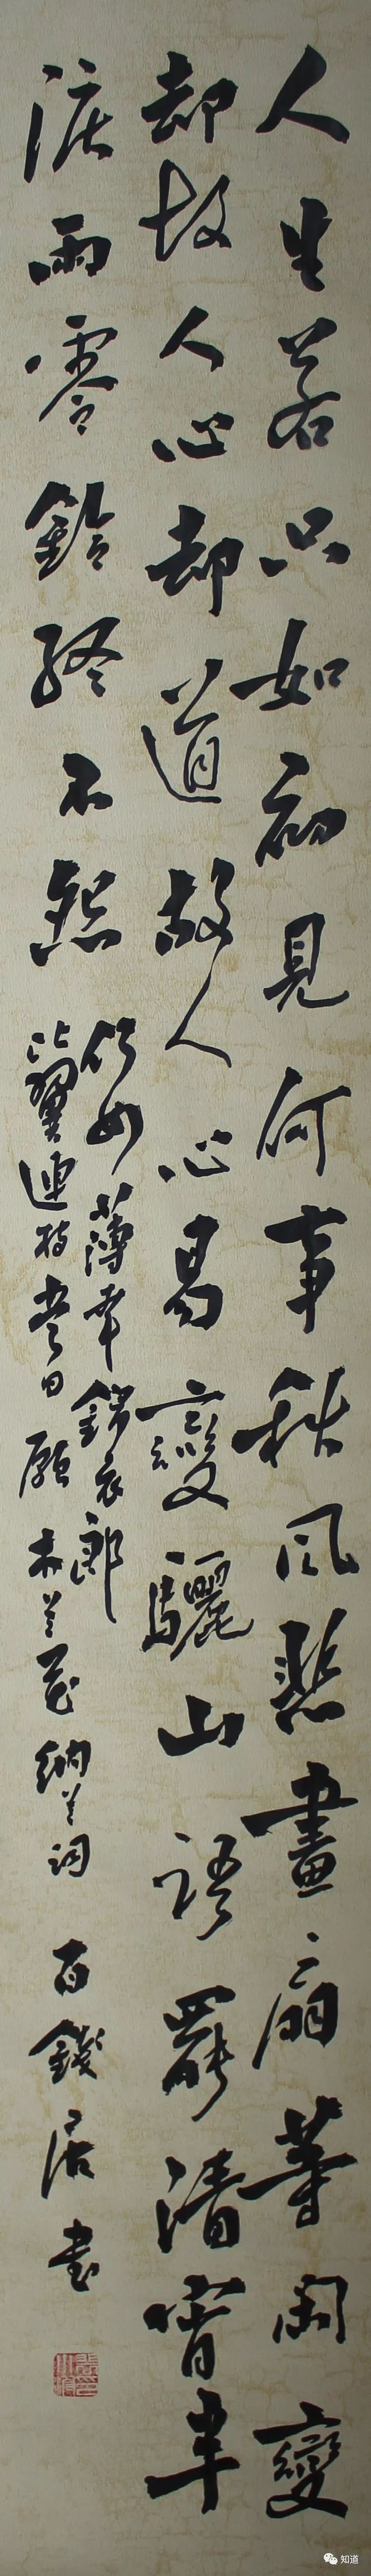 人生若只如初見何事秋風悲畫扇等閑變
却故人心却道故人心易變驪山語罷清宵半
淚雨零鈴終不怨
何如薄幸錦衣郎
比翼連枝當日願木兰花納兰詞百錢居書
知道